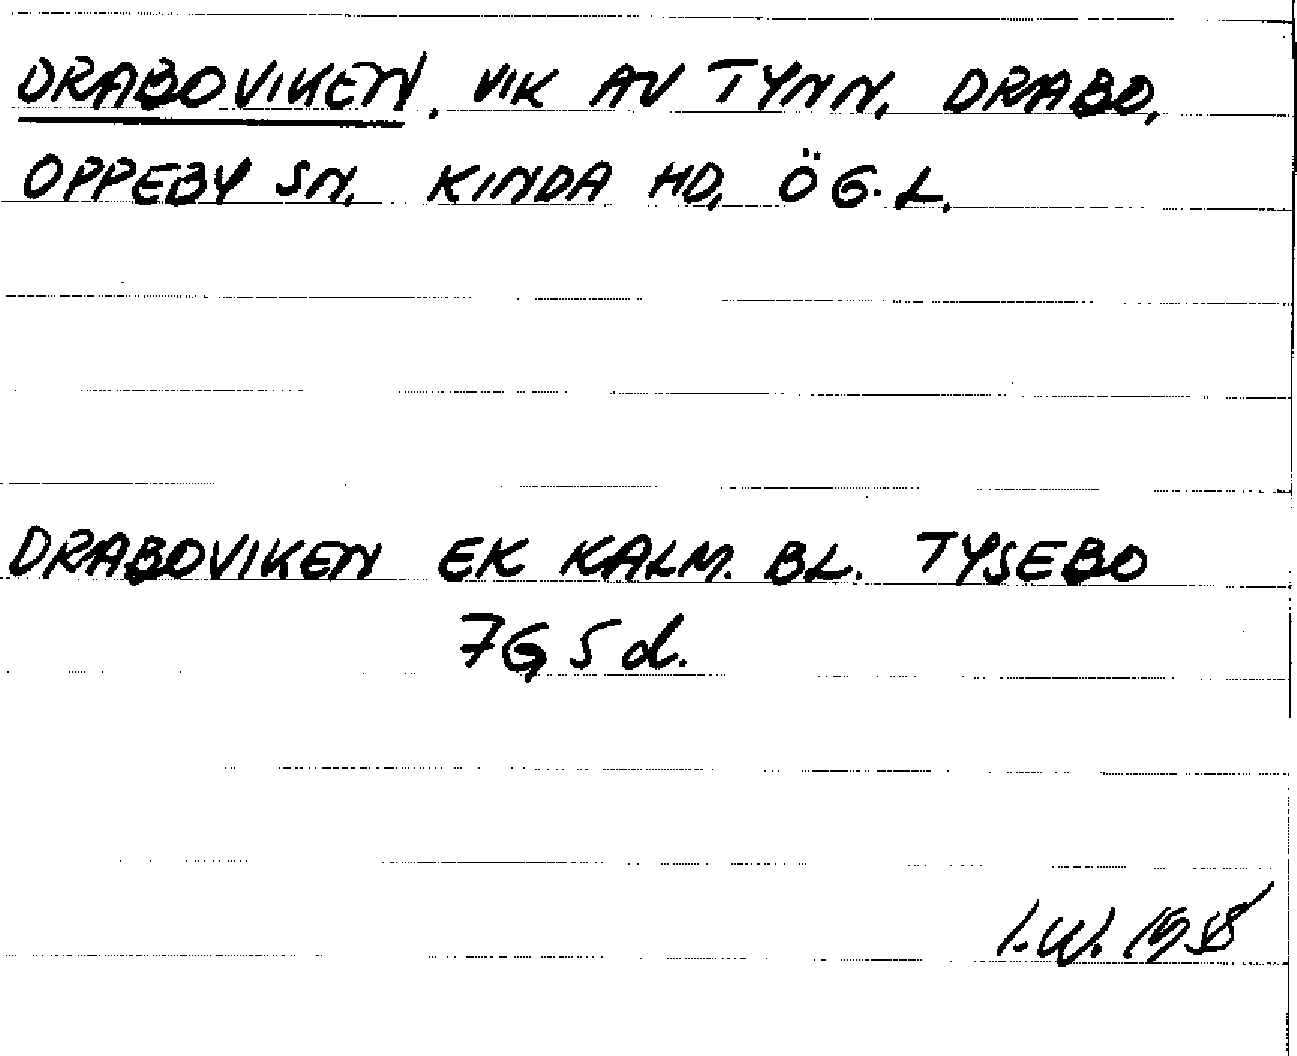 DRABOVIKEN, VIK AV TYNN, DRABO,
OPPEBY SN, KINDA HD, ÖG.L.
DRABOVIKEN EK KALM. BL. TYSEBO
7G 5d.
I.W. 1958